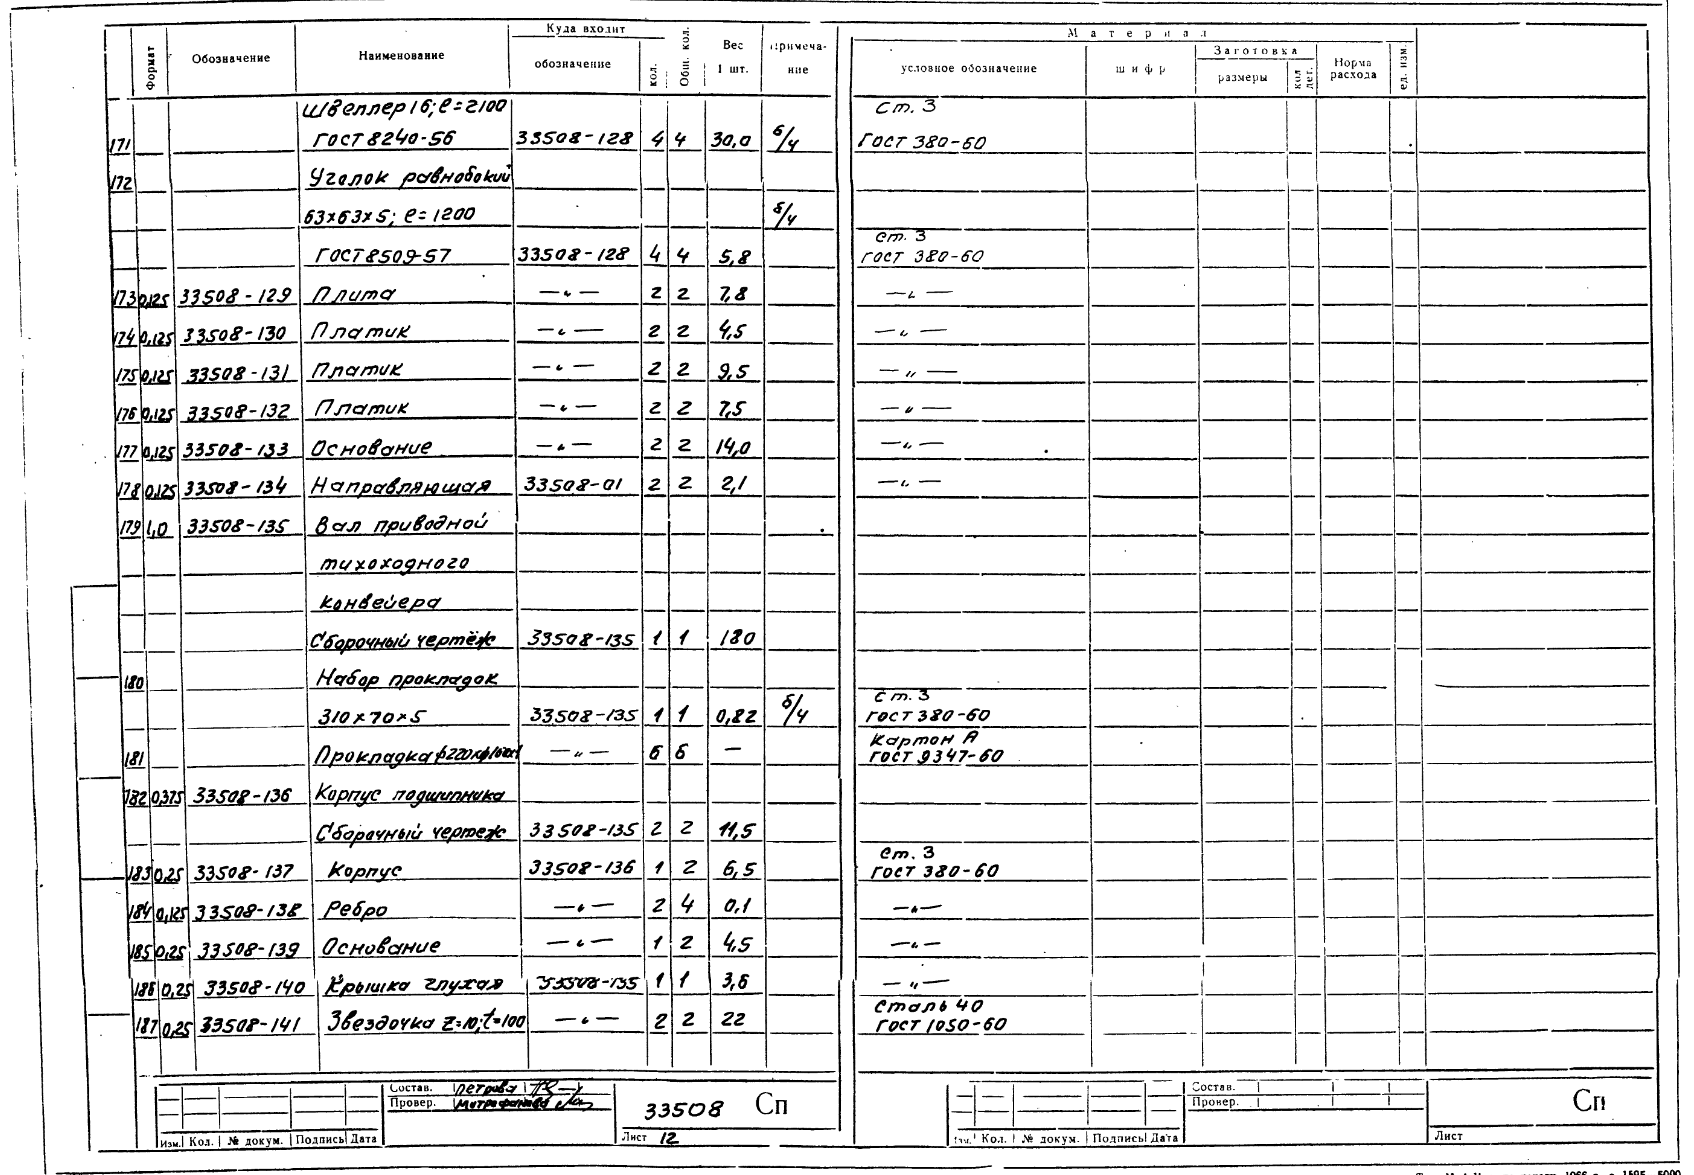 Формат Обозначение Наименование Куда входит обозначение кол. Общ. кол. Вес 1 шт. Примеча-ние Материал условное обозначение шифр Заготовка размеры кол дет. Норма расхода ед. изм.
Швеллер 16; е=2100 Ст. 3
171 ГОСТ 8240-56 33508-128 4 4 30,0 б/ч ГОСТ 380-60
172 Уголок равнобокий
63х63х5; е=1200 б/ч
ст. 3
ГОСТ 8509-57 33508-128 4 4 5,8 ГОСТ 380-60
173 0,125 33508-129 Плита —"— 2 2 7,8 —"—
174 0,125 33508-130 Платик —"— 2 2 4,5 —"—
175 0,125 33508-131 Платик —"— 2 2 9,5 —"—
176 0,125 33508-132 Платик —"— 2 2 7,5 —"—
177 0,125 33508-133 Основание —"— 2 2 14,0 —"—
178 0,125 33508-134 Направляющая 33508-01 2 2 2,1 —"—
179 1,0 33508-135 Вал приводной
тихоходного
конвейера
Сборочный чертёж 33508-135 1 1 180
180 Набор прокладок
ст. 3
310х70х5 33508-135 1 1 0,82 б/ч ГОСТ 380-60
Картон А
181 Прокладка —"— 6 6 — ГОСТ 9347-60
182 0,375 33508-136 Корпус подшипника
Сборочный чертеж 33508-135 2 2 11,5
ст. 3
183 0,25 33508-137 Корпус 33508-136 1 2 6,5 ГОСТ 380-60
184 0,125 33508-138 Ребро —"— 2 4 0,1 —"—
185 0,25 33508-139 Основание —"— 1 2 4,5 —"—
186 0,25 33508-140 Крышка глухая 33508-135 1 1 3,6 —"—
Сталь 40
187 0,25 33508-141 Звездочка z=10; t=100 —"— 2 2 22 ГОСТ 1050-60
Состав. Петрова
Провер. Митрофанова
33508 Сп
Изм. Кол. № докум. Подпись Дата Лист 12
Состав.
Провер.
Сп
Изм. Кол. № докум. Подпись Дата Лист